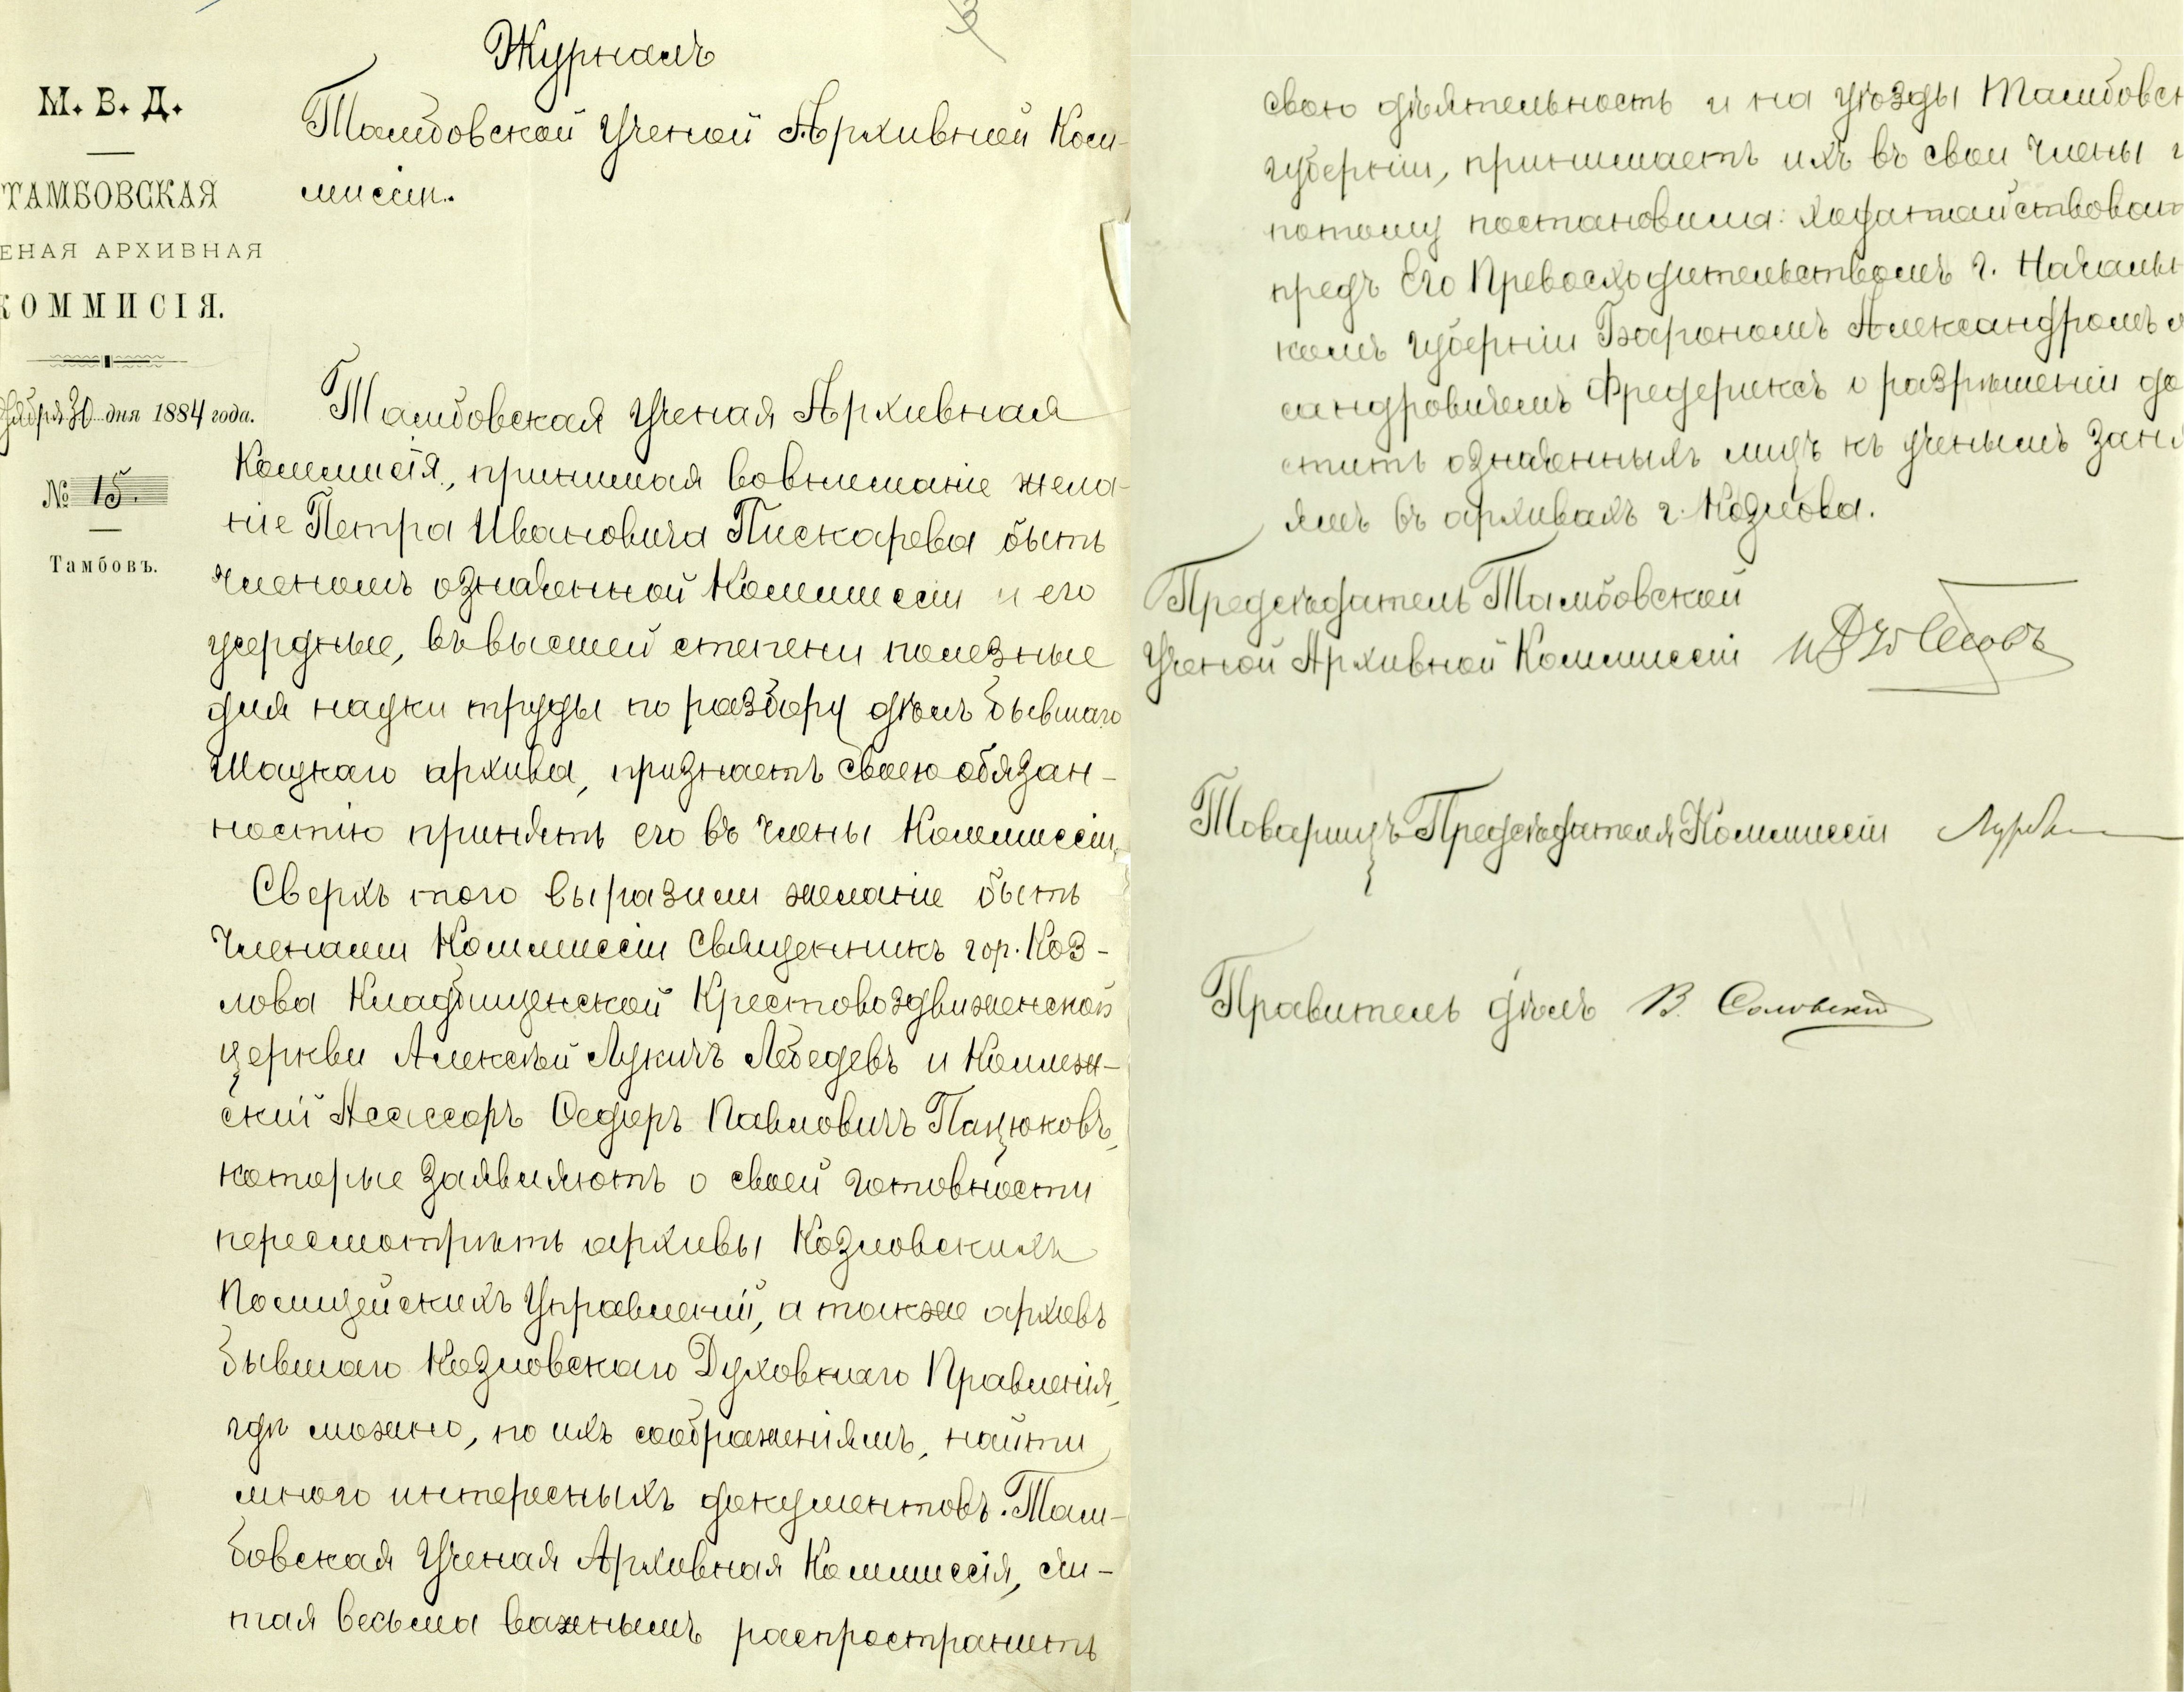 Журналъ
Тамбовской Ученой Архивной Ком-
миссіи.
М. В. Д.
ТАМБОВСКАЯ
ЕНАЯ АРХИВНАЯ
КОММИСІЯ.
30 дня 1884 года.
№ 15.
Тамбовъ.
Тамбовская Ученая Архивная
Коммисія, принимая во вниманіе жела-
ніе Петра Ивановича Пискарева быть
членомъ означенной Коммиссіи и его
усердные, въ высшей степени полезные
для науки труды по разбору дѣлъ бывшаго
Шацкаго архива, признаетъ своею обязан-
ностію принять его въ члены Коммиссіи.
Сверхъ того выразили желаніе быть
членами Коммиссіи Священникъ гор. Коз-
лова Кладбищенской Крестовоздвиженской
церкви Алексѣй Лукичъ Лебедевъ и Коллеж-
скій Ассессоръ Ѳедоръ Павловичъ Пацюковъ,
которые заявляютъ о своей готовности
пересмотрѣть архивы Козловскихъ
Полицейскихъ Управленій, а также архивъ
бывшаго Козловскаго Духовнаго Правленія,
гдѣ можно, по ихъ соображеніямъ, найти
много интересныхъ документовъ. Там-
бовская Ученая Архивная Коммиссія, счи-
тая весьма важнымъ распространить
свою дѣятельность и на уѣзды Тамбовск
губерніи, принимаетъ ихъ въ свои члены и
потому постановила: ходатайствоват
предъ Его Превосходительствомъ г. Начальн
комъ губерніи Барономъ Александромъ
сандровичемъ Фредериксъ о разрѣшеніи до
стить означенныхъ лицъ къ ученымъ заня
ямъ въ архивахъ г. Козлова.
Предсѣдатель Тамбовской
Ученой Архивной Коммиссіи
Товарищъ Предсѣдателя Коммиссіи
Правитель дѣлъ В.